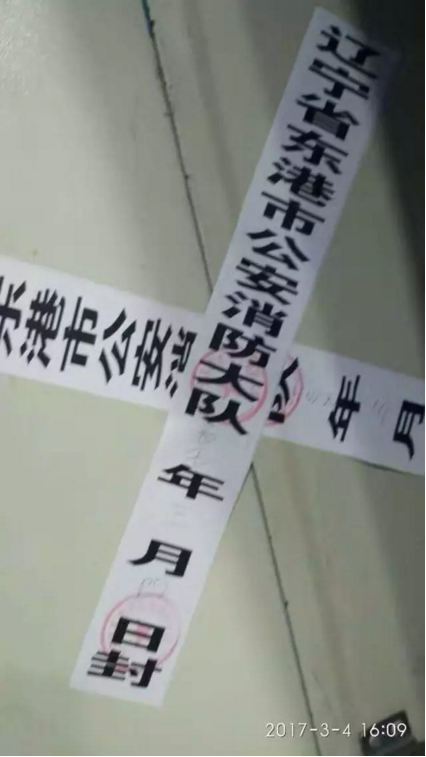 辽宁省东港市公安消防大队 年 月 日封
东港市公安消 队 年 月
2017-3-4 16:09